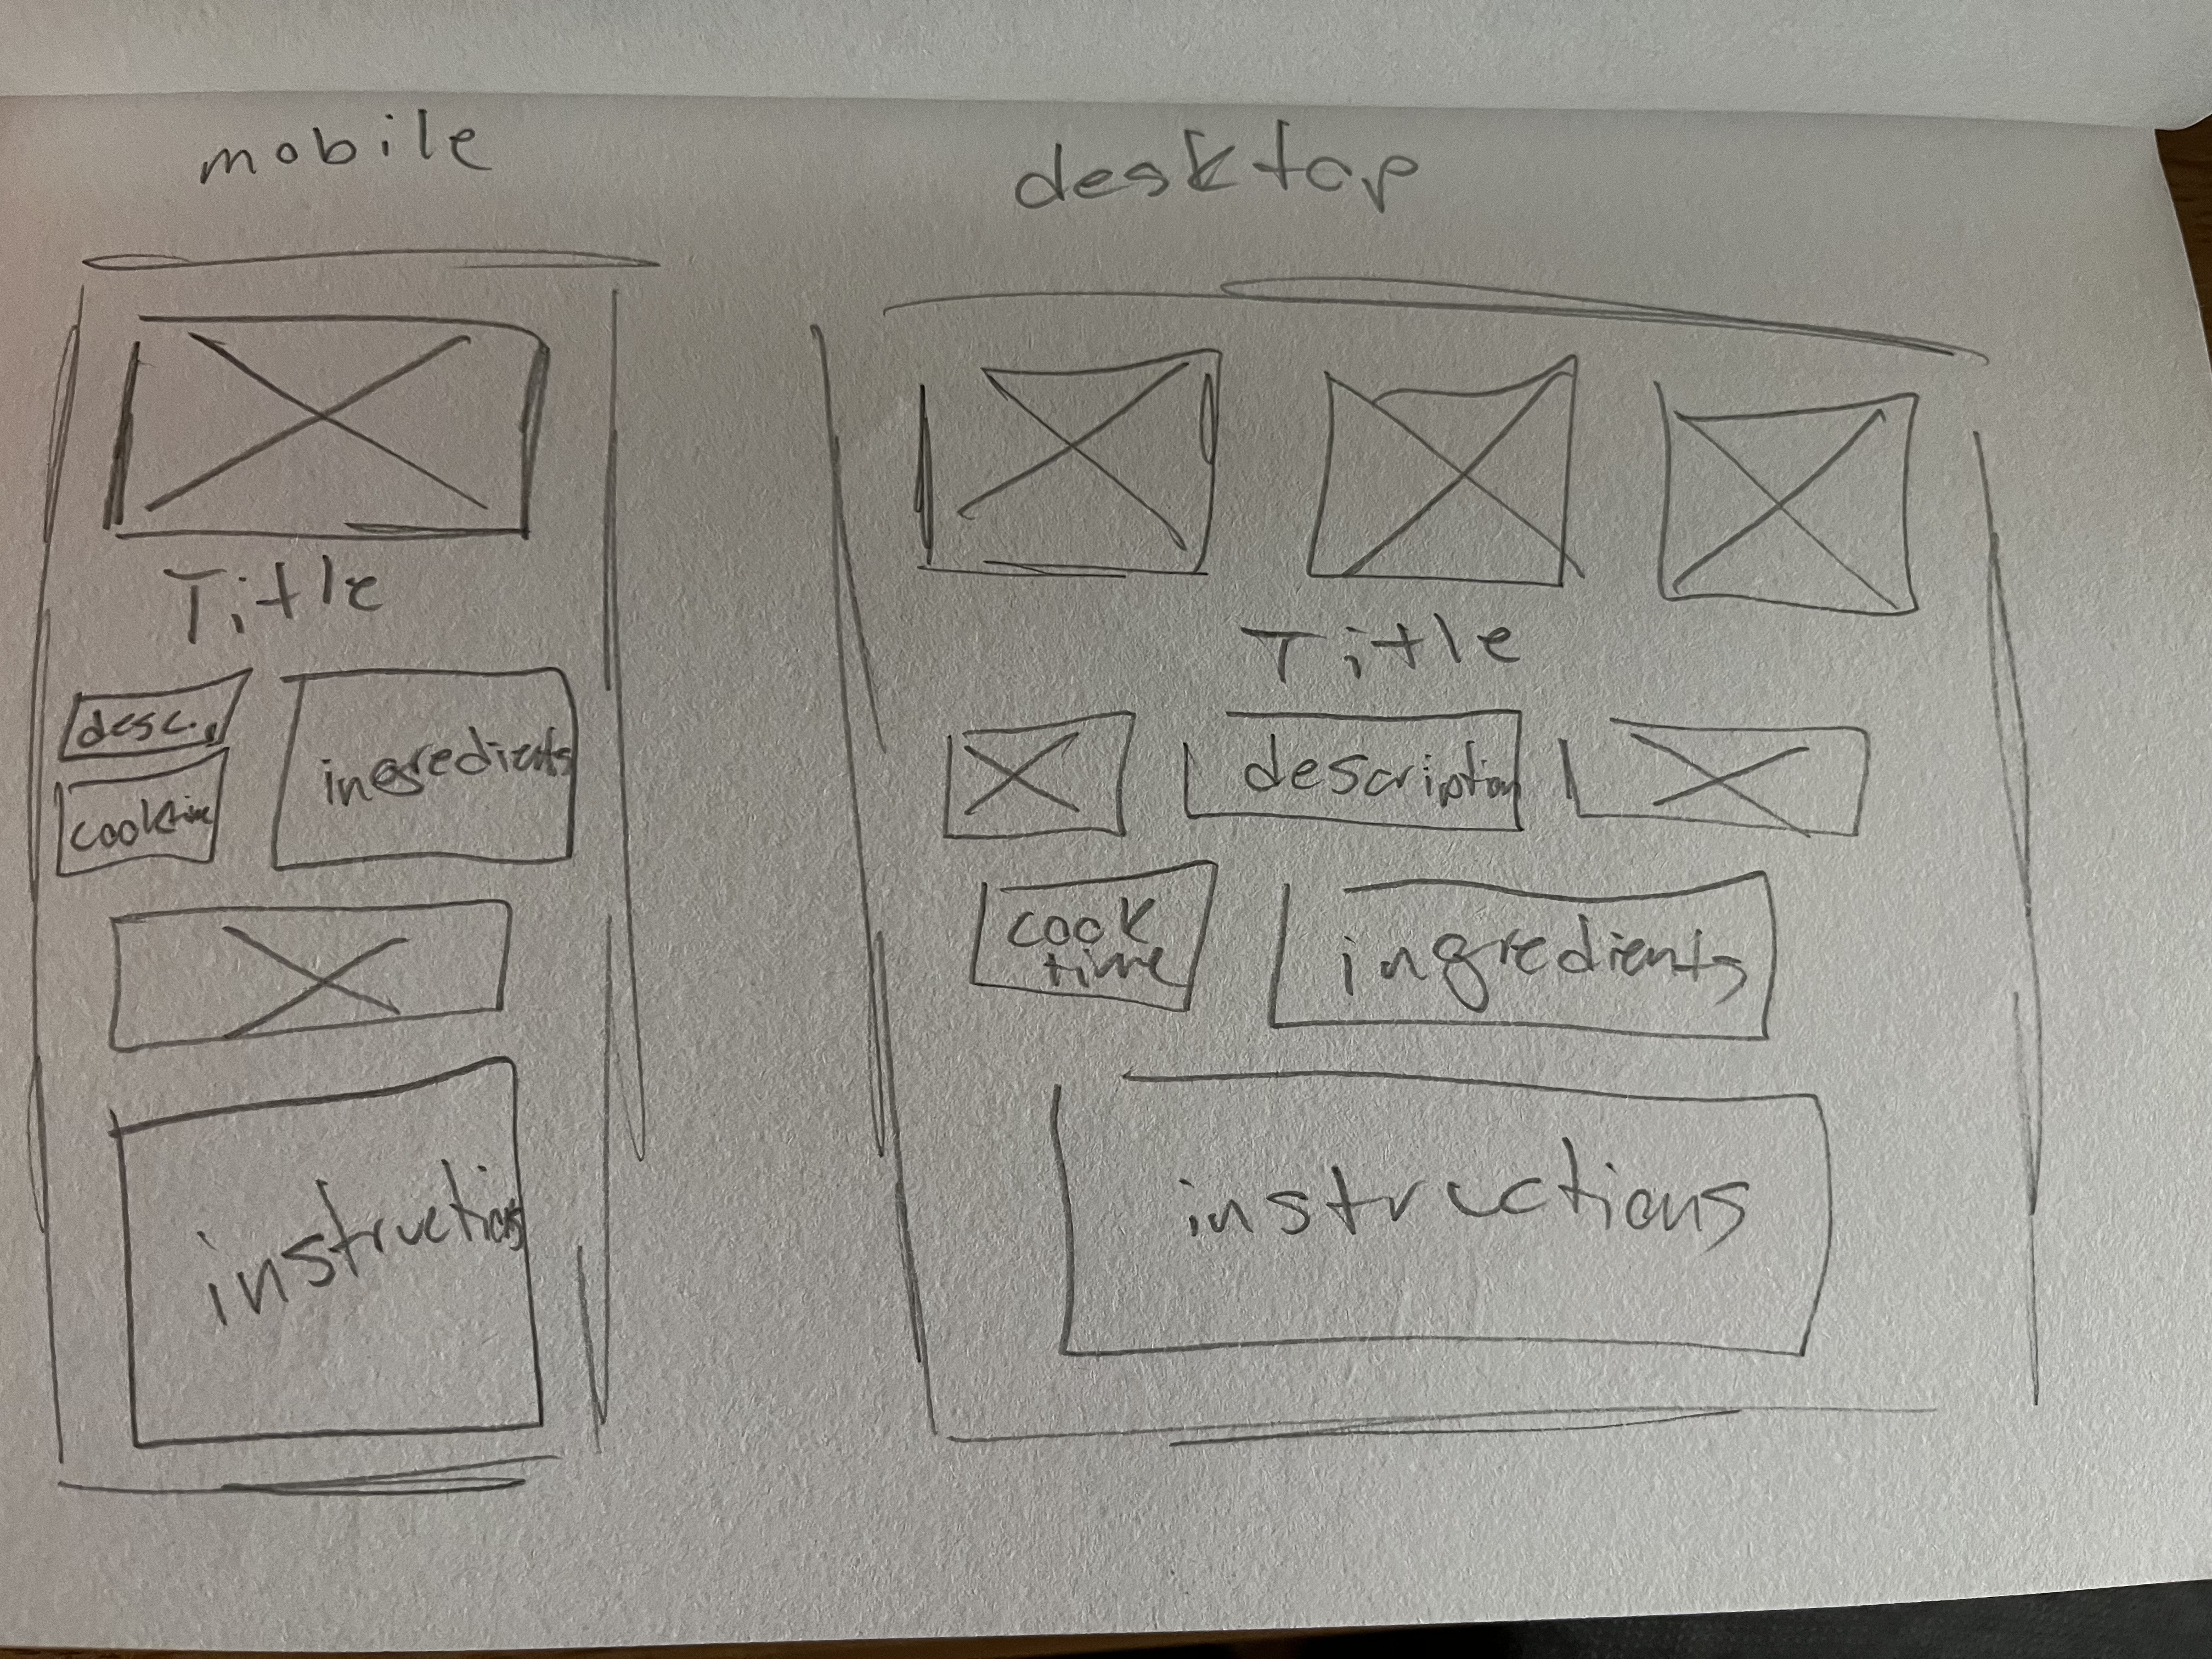 mobile
Title
desc.
cooking
ingredients
instructions
desktop
Title
description
cook
time
ingredients
instructions